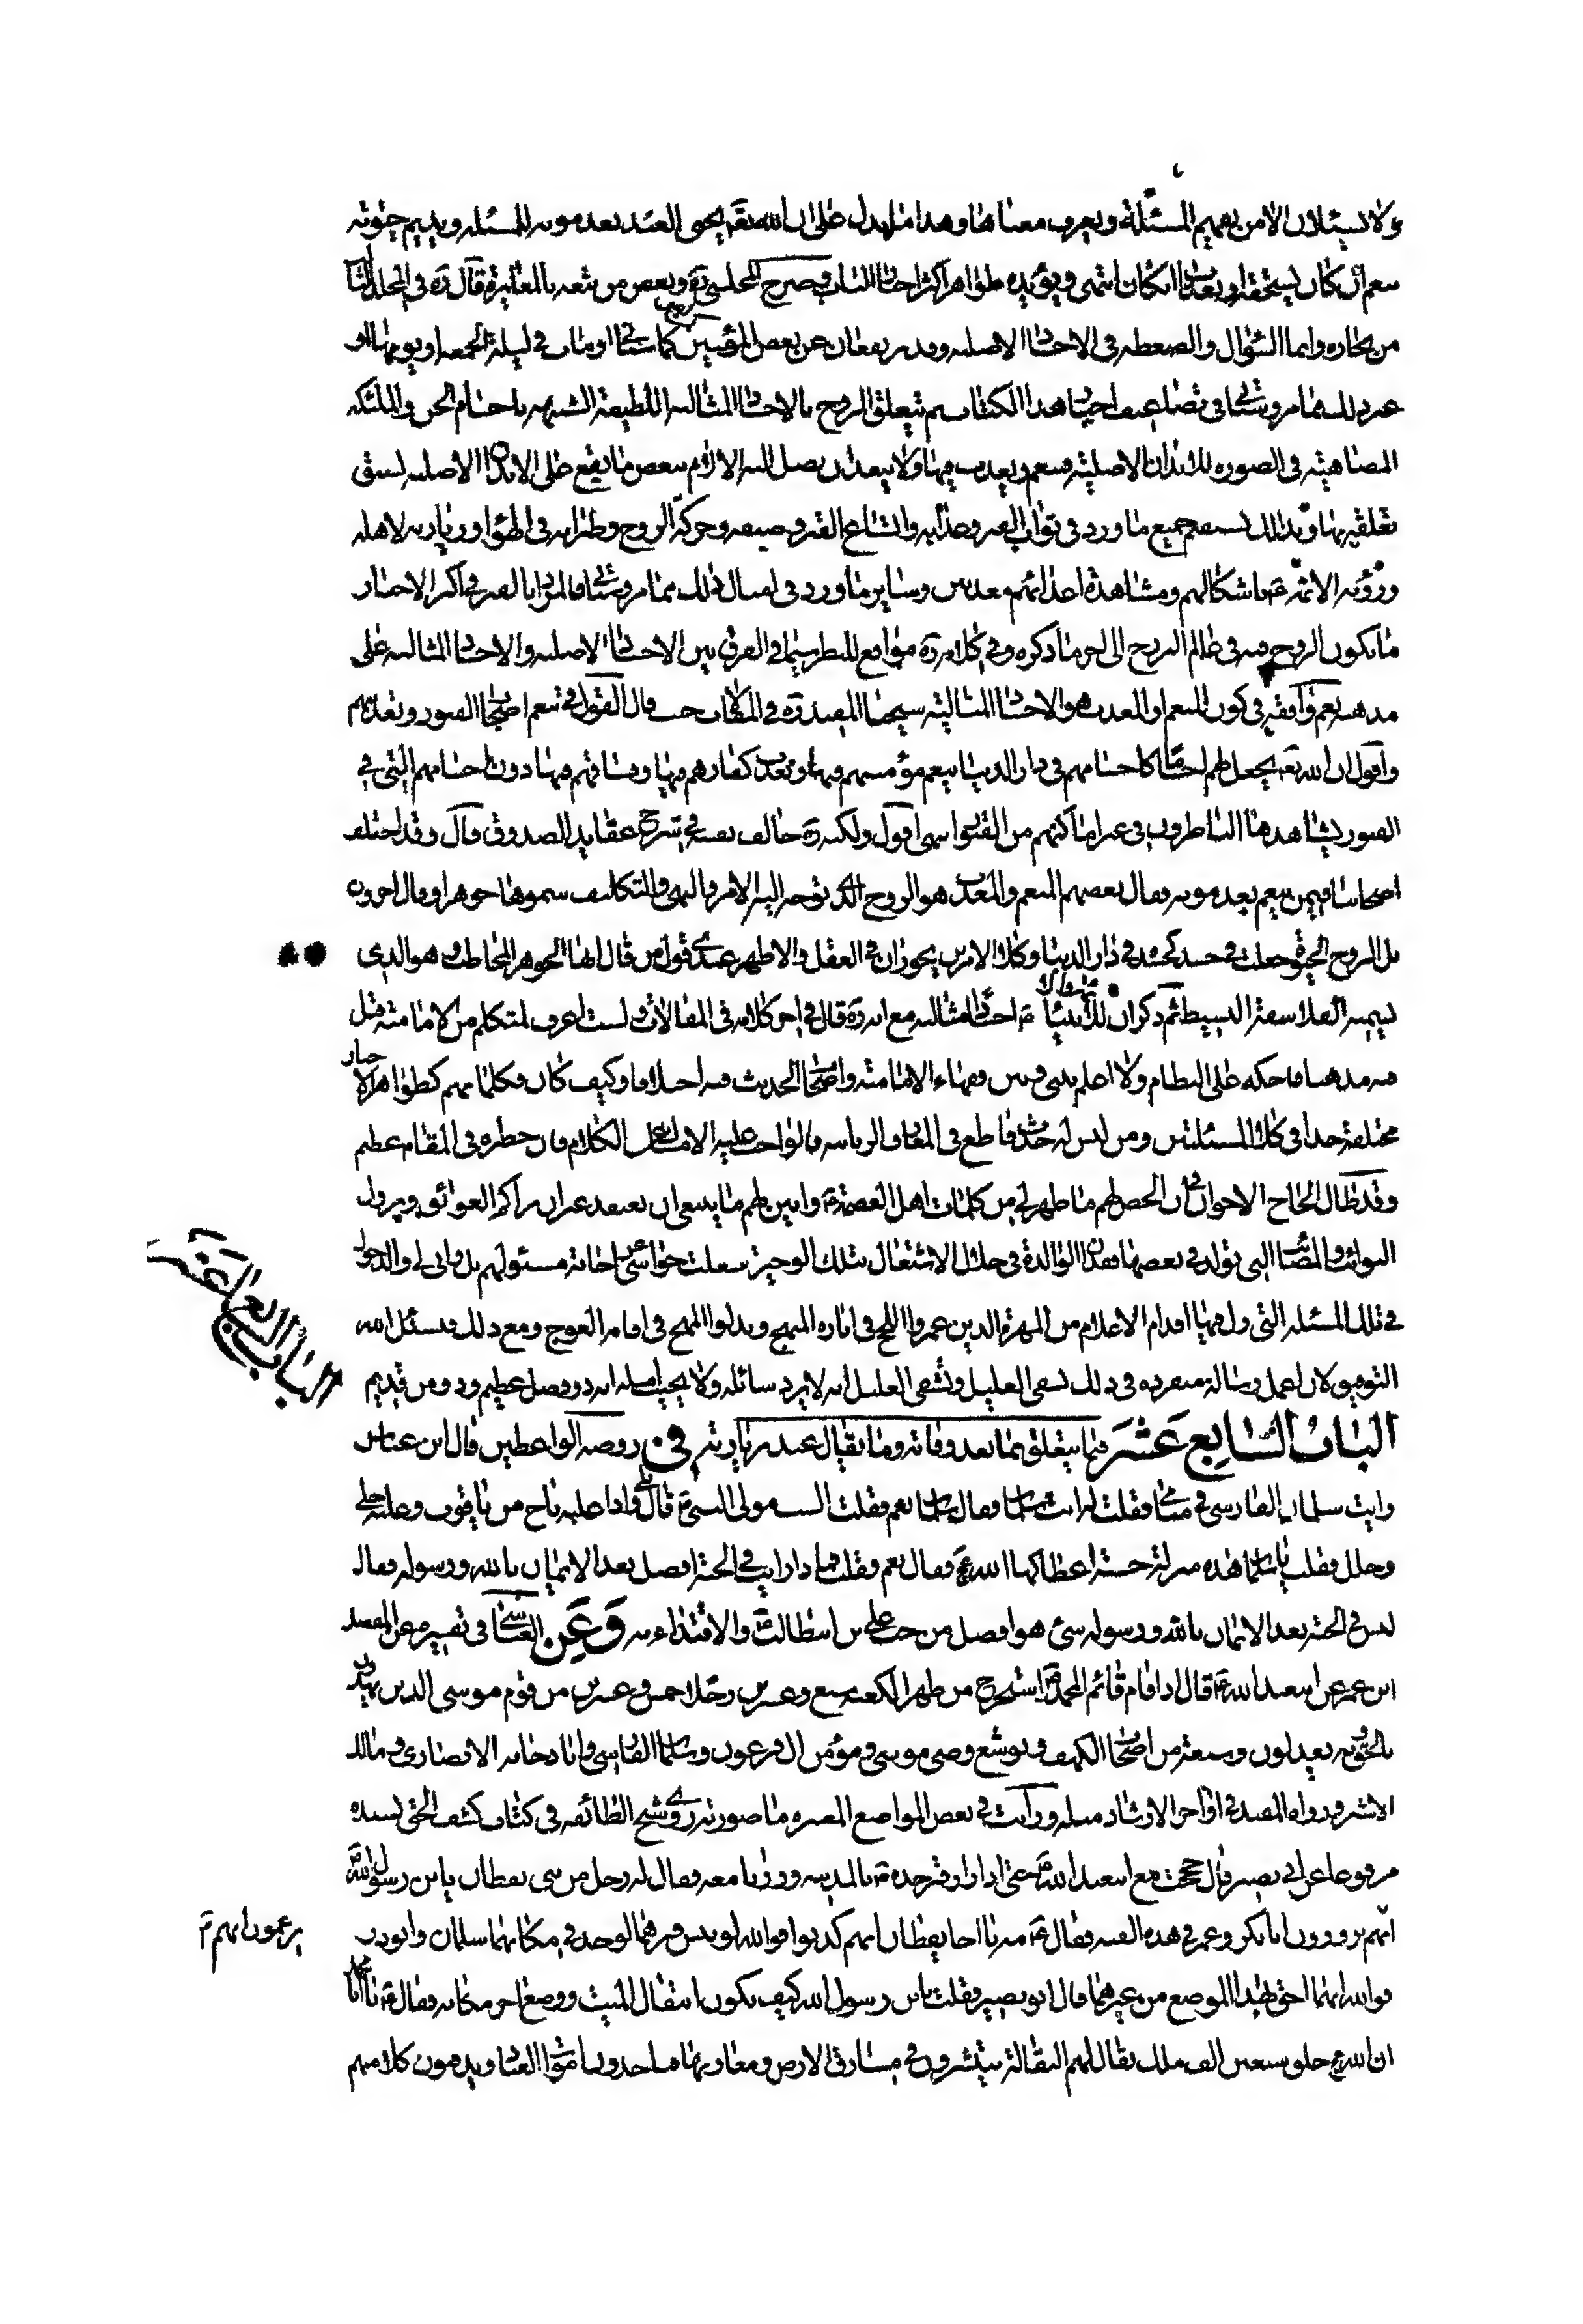 ولا يسئلان الا من يفهم المسئلة ويعرف معناها وهذا مما يدل على ان الله تعالى يحيى العبد بعد موته للمسئلة ويديم حيوته
بنعيم ان كان يستحقه او بعذاب ان كان انتهى ويؤيده ظواهر اكثر اخبار الباب وصرح المجلسي ره وبعض من تبعه بالمغايرة قال ره في المجلد الثالث
من بحاره واما السؤال والضغطة في الاجساد الاصلية وقد يرتفعان عن بعض المؤمنين كما سيأتي او مات في ليلة الجمعة او يومها او
غير ذلك مما مر وسيأتي في تضاعيف اخبار هذا الكتاب ثم يتعلق الروح بالاجساد المثالية اللطيفة الشبيهة باجسام الجن والملئكة
المضاهية في الصورة للابدان الاصلية فينعم ويعذب فيها ولا يبعد ان يصل اليه الالام ببعض ما يقع على الابدان الاصلية لسبق
تعلقه بها وبذلك يستقيم جميع ما ورد في ثواب القبر وعذابه واتساع القبر وضيقه وحركة الروح وطيرانه في الهواء وزيارته لاهله
ورؤية الائمة ع باشكالهم ومشاهدة اعدائهم معذبين وساير ما ورد في امثال ذلك مما مر وسيأتي فالمراد بالقبر في اكثر الاخبار
ما يكون الروح فيه في عالم البرزخ الى اخر ما ذكره وفي كلامه ره مواقع للنظر سيما في الفرق بين الاجساد الاصلية والاجساد المثالية على
مذهبه نعم وافقه في كون المنعم او المعذب هو الاجساد المثالية شيخنا المفيد ره في المقالات حيث قال القول في تنعم اصحاب القبور وتعذيبهم
واقول ان الله تعالى يجعل لهم اجساما كاجسامهم في دار الدنيا ينعم مؤمنيهم فيها ويعذب كفارهم فيها وفساقهم فيها دون اجسامهم التي في
القبور يشاهدها الناظرون في غير اماكنهم من القبور انتهى اقول ولكنه ره خالف نفسه في شرح عقايد الصدوق قال وقد اختلف
اصحابنا فيمن ينعم بعد موته فقال بعضهم المنعم والمعذب هو الروح الذي توجه اليه الامر والنهي والتكليف سموها جوهرا وقال اخرون
بل الروح الحيوة جعلت في جسد كجسده في دار الدنيا وكلا الامرين يجوزان في العقل والاظهر عندي قول من قال انها الجوهر المخاطب وهو الذي
يسميه الفلاسفة البسيط ثم ذكر ان للانبياء ع اجسادا مثالية مع انه ره قال في اخر كلامه في المقالات ولست اعرف لمتكلم من الامامية قبلي
فيه مذهبا فاحكيه على النظام ولا اعلم بيني وبين فقهاء الامامية واصحاب الحديث فيه اختلافا وكيف كان فكلماتهم كظواهر الاخبار
مختلفة جدا في كلا المسئلتين ومن ليس له حدس قاطع في المعارف الربانية فالواجب عليه الامساك عن الكلام فان خطره في المقام عظيم
وقد طال الحاح الاخوان في ان الخص لهم ما ظهر لي من كلمات اهل العصمة ع وابين لهم ما ينبغي ان يعتقد غير ان تراكم العوائق وبروز
البوائق والمصائب التي تولد في بعضها فقدان الوالدة في خلال الاشتغال بتلك الوجيزة شغلت حواسي عن اجابة مسئولهم بل واني لي والدخول
في تلك المسئلة التي زل فيها اقدام الاعلام من المهرة الذين غمروا اللجج في انارة المنهج وبذلوا المهج في اقامة العوج ومع ذلك فنسئل الله
التوفيق لان اعمل رسالة منفردة في ذلك تشفي العليل وتسقي الغليل انه لا يرد سائله ولا يخيب امله انه ذو فضل عظيم ومن قديم
الباب السابع عشر فيما يتعلق بما بعد وفاته وما يقال عند زيارته في روضة الواعظين قال ابن عباس
رايت سلمان الفارسي في منامي فقلت له انت سلمان فقال سلمان نعم فقلت الست مولى النبي ص قال بلى واذا عليه تاج من ياقوت وعليه حلي
وحلل فقلت يا سلمان هذه منزلة حسنة اعطاكها الله عز وجل فقال نعم فقلت فماذا رايت في الجنة افضل بعد الايمان بالله ورسوله فقال
ليس في الجنة بعد الايمان بالله ورسوله شئ هو افضل من حب علي بن ابيطالب ع والاقتداء به وعن العياشي في تفسيره عن المفضل
ابن عمر عن ابيعبد الله ع قال اذا قام قائم ال محمد ص استخرج من ظهر الكعبة سبع وعشرين رجلا خمس وعشرين من قوم موسى الذين يهدون
بالحق وبه يعدلون وسبعة من اصحاب الكهف ويوشع وصي موسى ومؤمن ال فرعون وسلمان الفارسي وابا دجانه الانصاري ومالك
الاشتر ورواه المفيد في اواخر الارشاد مثله ورايت في بعض المواضع المعتبرة ما صورته روى شيخ الطائفة في كتاب كشف الحق بسنده
مرفوعا عن ابي بصير قال حججت مع ابيعبد الله ع حتى اذا زار قبر جده ص بالمدينة وزرنا معه فقال له رجل من بني يقظان يابن رسول الله ص
انهم يزورون ابا بكر وعمر في هذه القبة فقال ع مه يا اخا يقظان انهم كذبوا فوالله لو نبش قبرهما لوجد في مكانهما سلمان وابوذر
فوالله انهما احق بهذا الموضع من غيرهما قال ابو بصير فقلت يابن رسول الله كيف يكون انتقال الميت ووضع اخر مكانه فقال ع يا ابا محمد
ان الله عز وجل خلق سبعين الف ملك يقال لهم النقالة ينتشرون في مشارق الارض ومغاربها فياخذون اموات العباد ويدفنون كلا منهم
الباب السابع عشر
يزعمون انهم